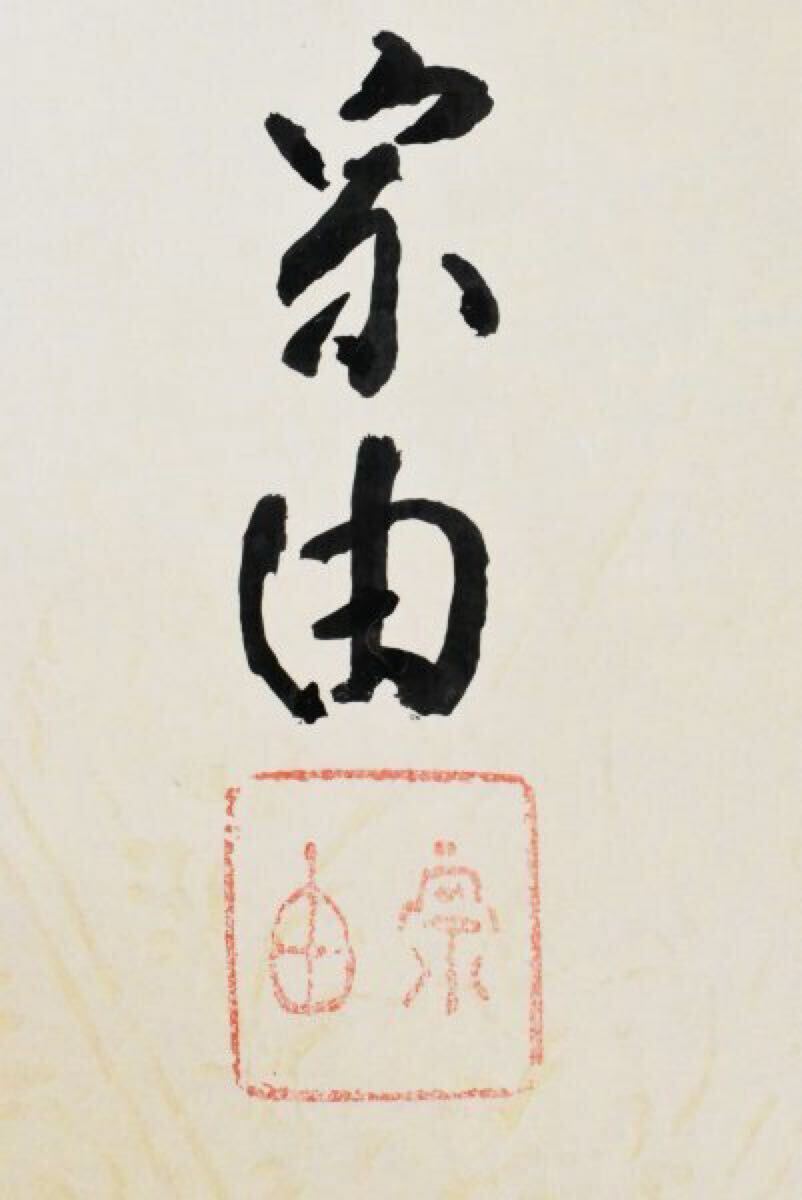 宗由
宗由